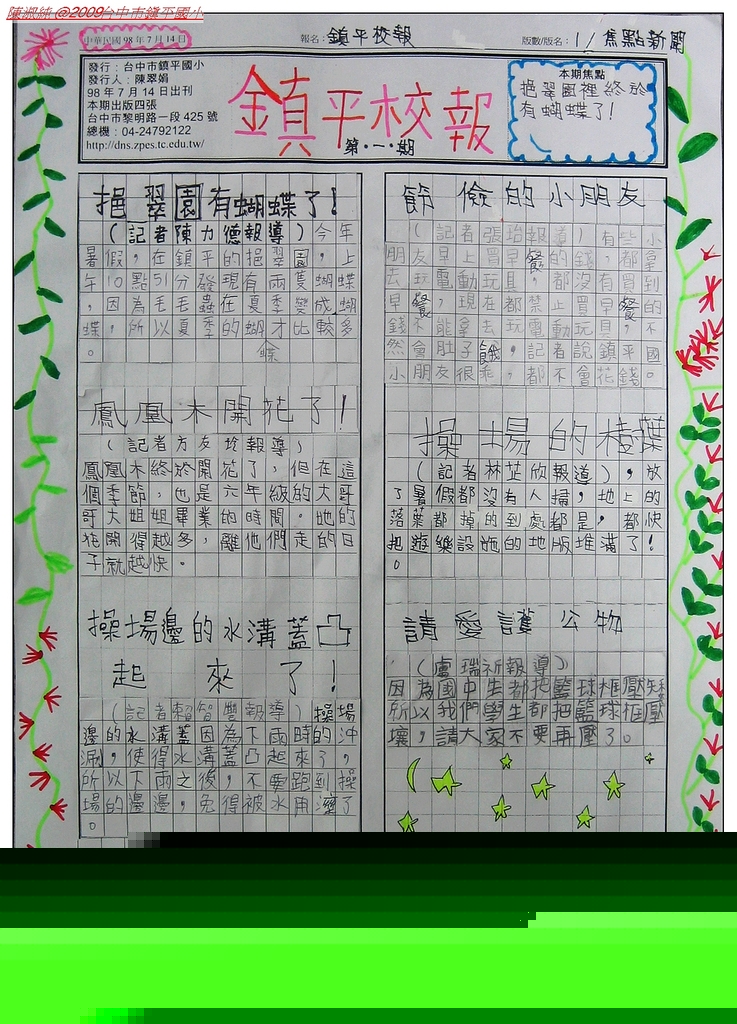 陳淑純 @2009台中市鎮平國小
中華民國 98 年 7 月 14 日
報名：鎮平校報
版數/版名：1/焦點新聞
發行：台中市鎮平國小
發行人：陳翠娟
98 年 7 月 14 日出刊
本期出版四張
台中市黎明路一段 425 號
總機：04-24792122
http://dns.zpes.tc.edu.tw/
鎮平校報
第·一·期
本期焦點
挹翠園裡終於
有蝴蝶了！
挹翠園有蝴蝶了！
（記者陳力德報導）今年
暑假，在鎮平的挹翠園，上
午10點51分發現有兩隻蝴蝶
，因為毛毛蟲在夏季變成蝴
蝶，所以夏季的蝴才比較多
。
蝶
鳳凰木開花了！
（記者方友玲報導）
鳳凰木終於開花了，但在這
個季節，也是六年級的大哥
哥大姐姐畢業的時間。他的
花開得越多，離他們走的日
子就越快。
操場邊的水溝蓋凸
起來了！
（記者賴智豐報導）操場
邊的水溝蓋因為下雨時的沖
，使得水溝蓋凸起來了，
所以下雨之後，不要跑到操
場的邊邊，免得被水用溼了
。
節儉的小朋友
（記者張珆報導）有些小
朋友早上買早餐的錢，都拿
去玩電動玩具，都沒有買到
早餐，現在都禁止買早餐的
錢不能拿去玩電動玩具，不
然會肚子餓，記者說鎮平國
小朋友很乖，都不會花錢。
操場的樹葉
（記者林芷欣報導），放
了暑假都沒有人掃，地上的
落葉都掉的到處都是，都快
把遊樂設施的地版堆滿了！
。
請愛護公物
（盧瑞祈報導）
因為國中生都把籃球框壓
所以我們學生都把籃球框壓
壞，請大家不要再壓了。